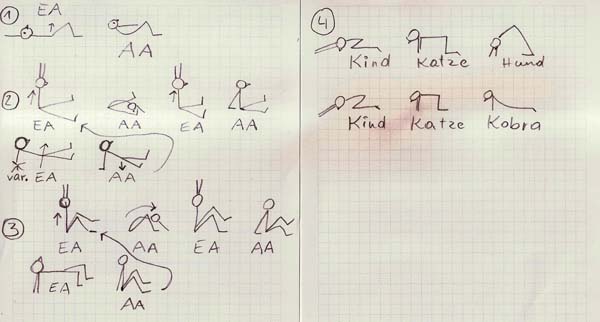 1
EA
AA
2
EA AA EA AA
var. EA AA
3
EA AA EA AA
EA
AA
4
Kind Katze Hund
Kind Katze Kobra